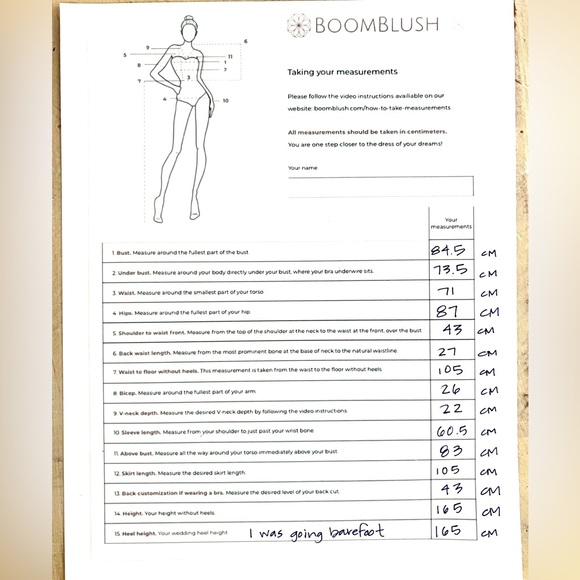 BOOMBLUSH
Taking your measurements
Please follow the video instructions available on our
website: boomblush.com/how-to-take-measurements
All measurements should be taken in centimeters.
You are one step closer to the dress of your dreams!
Your name
9
6
5
11
8
1
2
7
3
4
10
Your
measurements
1 Bust. Measure around the fullest part of the bust 84.5 CM
2 Under bust. Measure around your body directly under your bust, where your bra underwire sits. 73.5 CM
3 Waist. Measure around the smallest part of your torso 71 CM
4 Hips. Measure around the fullest part of your hip 87 CM
5 Shoulder to waist front. Measure from the top of the shoulder at the neck to the waist at the front, over the bust 43 CM
6. Back waist length. Measure from the most prominent bone at the base of neck to the natural waistline 27 CM
7. Waist to floor without heels. This measurement is taken from the waist to the floor without heels 105 CM
8 Bicep. Measure around the fullest part of your arm 26 CM
9 V-neck depth. Measure the desired V-neck depth by following the video instructions 22 CM
10 Sleeve length. Measure from your shoulder to just past your wrist bone 60.5 CM
11. Above bust. Measure all the way around your torso immediately above your bust 83 CM
12. Skirt length. Measure the desired skirt length 105 CM
13. Back customization if wearing a bra. Measure the desired level of your back cut 43 CM
14. Height. Your height without heels. 165 CM
15. Heel height. Your wedding heel height I was going barefoot 165 CM